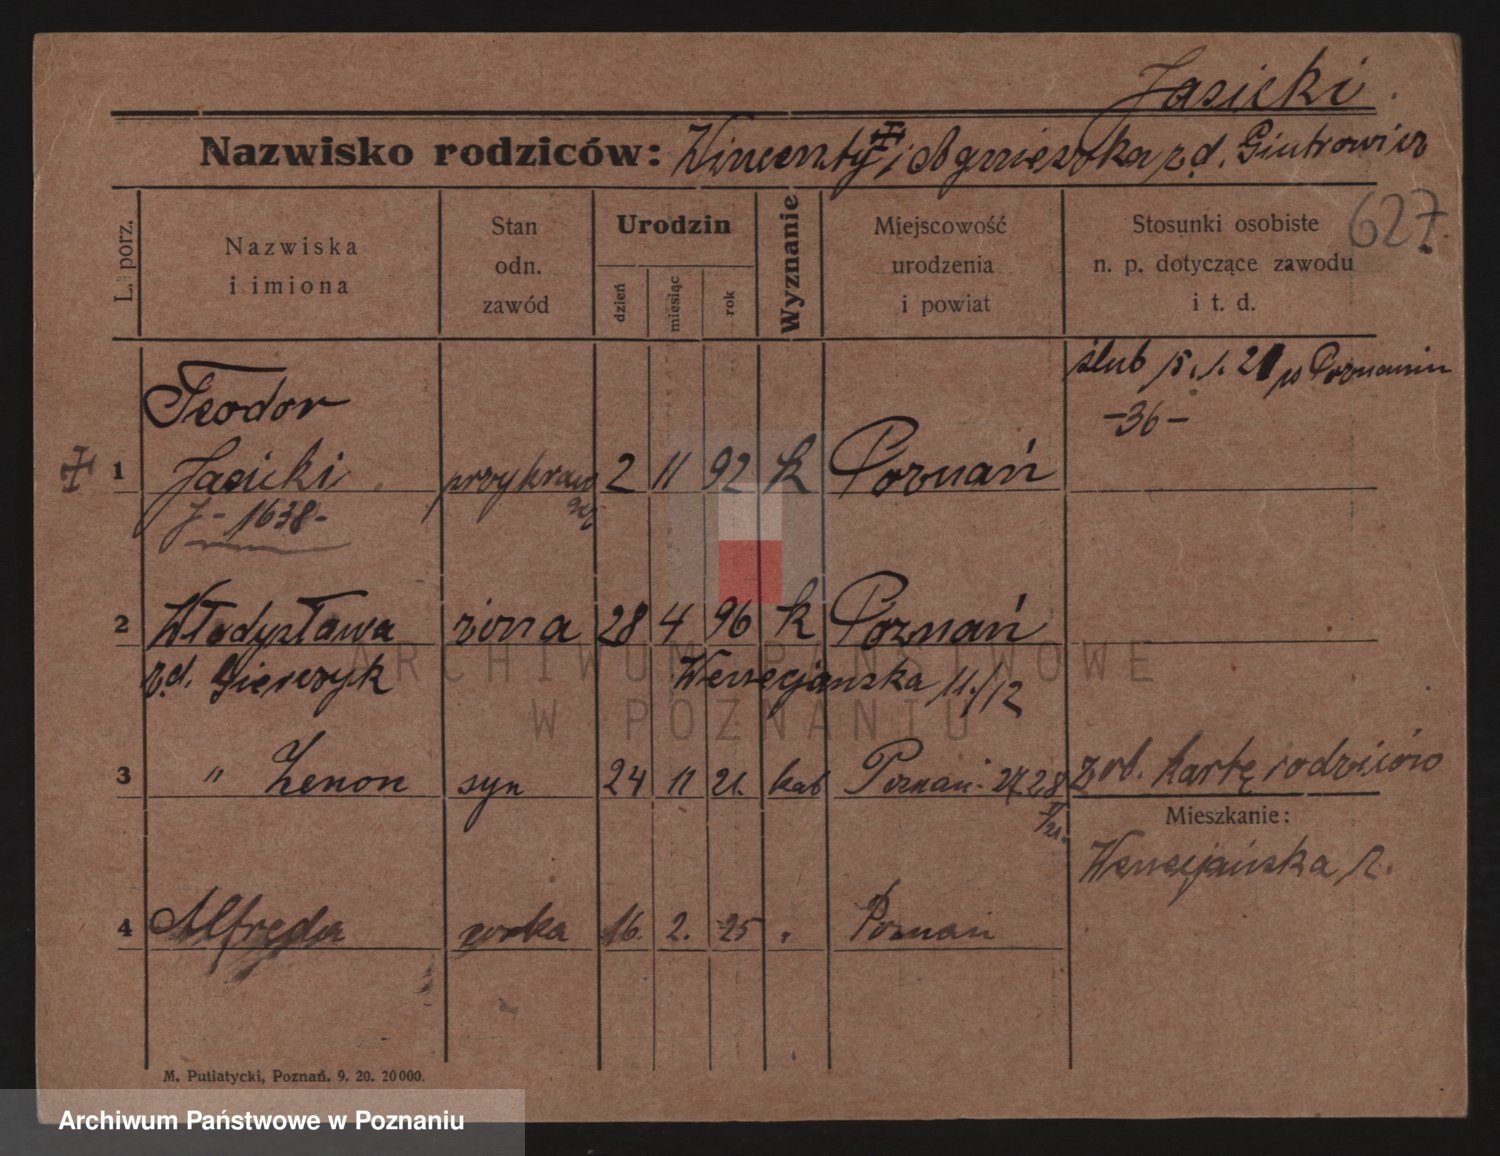 Jasicki
Nazwisko rodziców: Wincenty i Agnieszka z d. Piotrowicz
627.
L. porz.
Nazwiska i imiona
Stan odn. zawód
Urodzin
dzień
miesiąc
rok
Wyznanie
Miejscowość urodzenia i powiat
Stosunki osobiste n. p. dotyczące zawodu i t. d.
ślub 15. 1. 21 w Poznaniu
-36-
Teodor
1 Jasicki 2 11 92 k Poznań
J - 1638 -
2 Władysława żona 28 4 96 k Poznań
z.d. Gierczyk Wenecjanska 11/12
3 " Zenon syn 24 11 21. kat Poznań
zrb. kartę rodziców
Mieszkanie:
Wenecjańska
4 Alfreda córka 16. 2. 25 " Poznań
ARCHIWUM PAŃSTWOWE
W POZNANIU
M. Putiatycki, Poznań. 9. 20. 20 000.
Archiwum Państwowe w Poznaniu